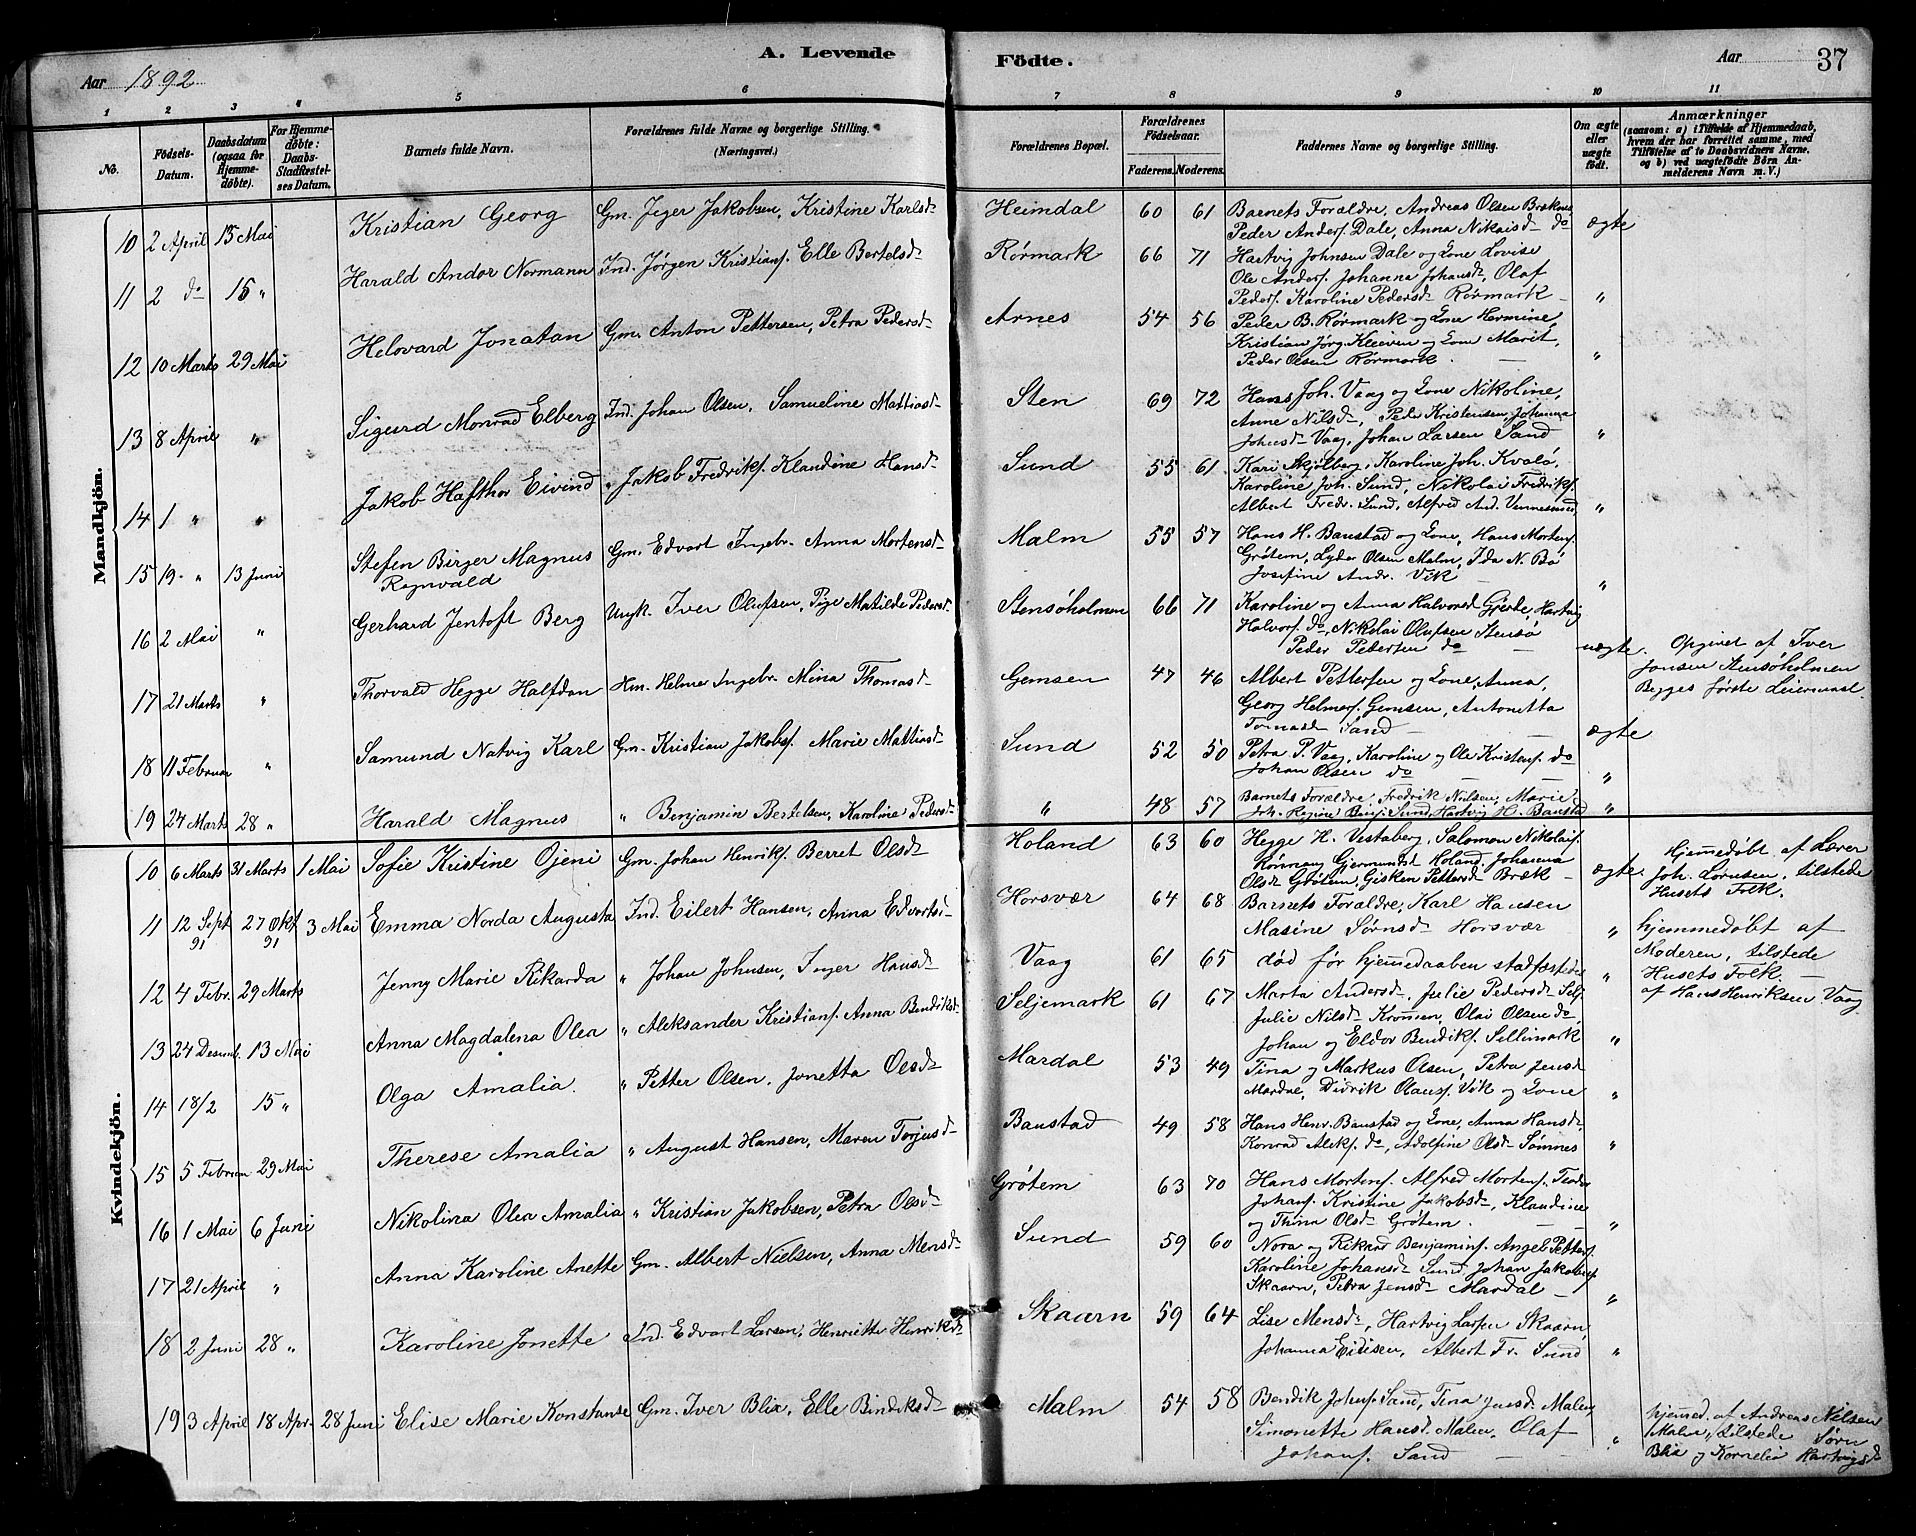 A. Levende Födte.
Aar 1892
Aar 37
1 2 3 4 5 6 7 8 9 10 11
No.
Födsels-Datum.
Daabsdatum (ogsaa for Hjemmedøbte).
For Hjemmedøbte: Daabs-Stadfæstelses Datum.
Barnets fulde Navn.
Forældrenes fulde Navne og borgerlige Stilling. (Næringsvei.)
Forældrenes Bopæl.
Forældrenes Födselsaar. Faderens. Moderens.
Faddernes Navne og borgerlige Stilling.
Om ægte eller uægte født.
Anmærkninger (saasom: a) i Tilfælde af Hjemmedaab, hvem der har forrettet samme, med Tilføielse af to Daabsvidners Navne, og b) ved uægtefødte Børn Anmelderens Navn m. V.)
Mandkjön.
10 2 April 15 Mai Kristian Georg Gm. Jeger Jakobsen, Kristine Karlsd Heimdal 60 61 Barnets Forældre, Andreas Olsen Bræknes
Peder Anders. Dale, Anna Nikaisd do ægte
11 2 do 15 " Harald Andor Normann Ind. Jørgen Kristians. Elle Bertelsd Rørmark 66 71 Hartvig Johnsen Dale og Kone Lovise
Ole Anders. Johanna Johansd, Olaf
Peders. Karoline Pedersd Rørmark "
12 10 Marts 29 Mai Helovard Jonatan Gm. Anton Pettersen, Petra Pedersd Arnes 54 56 Peder B. Rørmark og Kone Hermine,
Kristian Jörg. Kleiven og Kone Marit,
Peder Olsen Rørmark. "
13 8 April " Sigurd Monrad Elberg Ind. Johan Olsen, Samueline Mattiasd Sten 69 72 Hans Joh. Vaag og Kone Nikoline,
Anne Nilsd, Peder Kristensen, Johanna
Johnsd Vaag, Johan Larsen Sand "
14 1 " " Jakob Hafthor Eivind " Jakob Fredriks. Klaudine Hansd Sund 55 61 Kari Skjølberg, Karoline Joh. Kvalø,
Karoline Joh. Sund, Nikolai Fredriks.
Albert Fredr. Sund, Alfred And. Vennesund "
15 19 " 13 Juni Stefen Birger Magnus Gm. Edvart Ingebr. Anna Mortensd Malm 55 57 Hans H. Baustad og Kone, Hans Mortens.
Ragnvald Grøtem, Lyder Olsen Malm, Ida N. Bø
Josefine Andr. Vik "
16 2 Mai " Gerhard Jentoft Berg Ungk. Iver Olufsen, Pige Matilde Pedersd Stensøholmen 66 71 Karoline og Anna Halvorsd Gjerde, Hartvig
Halvors. do, Nikolai Olufsen Stensø
Peder Petersen do uægte. Opgivet af Iver
Jonsen Stensøholmen
Begges første Leiermaal.
17 21 Marts " Thorvald Hegge Halfdan Hm. Helmer Ingebr. Mina Thomasd Gemsen 47 46 Albert Pettersen og Kone, Anna,
Georg Helmers. Gemsen, Antonetta
Tomasd Sand ægte
18 11 Februar " Samund Natvig Karl Gm. Kristian Jakobs. Marie Mattiasd Sund 52 50 Petra P. Vaag, Karoline og Ole Kristens. do
Johan Olsen do "
19 24 Marts 28 " Harald Magnus " Benjamin Bertelsen, Karoline Pedersd " 48 57 Barnets Forældre, Fredrik Nielsen, Marie
Joh. Regine Benj. Sund, Hartvig H. Baustad "
Kvindekjön.
10 6 Marts 31 Marts 1 Mai Sofie Kristine Ojeni Gm. Johan Henriks. Berret Olsd Holand 63 60 Hegge H. Vestaberg, Salomon Nikolais.
Rørmang Gjermundst Holand, Johanna
Olsd Grøtem, Gisken Pettersd Bræk ægte. Hjemmedøbt af Lærer
Joh. Lornsen, tilstede
Husets Folk.
11 12 Sept 91 27 Okt 91 3 Mai Emma Norda Augusta Ind. Eilert Hansen, Anna Edvarts. Horsvær 64 68 Barnets Forældre, Karl Hansen
Masine Sørnsd Horsvær " hjemmedøbt af
Moderen, tilstede
Husets Folk
12 4 Febr. 29 Marts Jenny Marie Rikarda " Johan Johnsen, Inger Hansd Vaag 61 65 død før hjemmedaaben stadfæstedes " af Hans Henriksen Vaag
13 24 Desemb. 13 Mai Anna Magdalena Olea " Aleksander Kristians. Anna Bendiksd Seljemark 61 67 Marta Andersd, Julie Pedersd Selj.
Julie Nilsd Kronsen, Olai Olsen do
Johan og Eldor Bendiks. Sellimark "
14 18/2 15 " Olga Amalia. " Petter Olsen, Jonetta Olsd Mardal 53 49 Tina og Markus Olsen, Petra Jensd
Mardal, Didrik Olaus. Vik og Kone "
15 5 Februar 29 Mai Therese Amalia " August Hansen, Maren Torjusd Baustad 49 58 Hans Henr. Baustad og Kone, Anna Hansd
Konrad Aleks. do, Adolfine Olsd Sømnes "
16 1 Mai 6 Juni Nikolina Olea Amalia " Kristian Jakobsen, Petra Olsd Grøtem 63 70 Hans Mortens. Alfred Mortens. Teodor
Johans. Kristine Jakobsd, Klaudine
og Thina Olsd Grøtem. "
17 21 April " Anna Karoline Anette Gm. Albert Nielsen, Anna Mensd Sund 59 60 Nora og Rikard Benjamins. Angel Petters.
Karoline Johansd Sund, Johan Jakobs.
Skaarn, Petra Jensd Mardal "
18 2 Juni 28 " Karoline Jonette Ind. Edvart Larsen, Henriette Henriksd Skaarn 59 64 Lise Mensd, Hartvig Larsen Skaarn,
Johanna Eidisen, Albert Fr. Sund "
19 3 April 18 Apr. 28 Juni Elise Marie Konstanse Gm. Iver Blix, Elle Bendiksd Malm 54 58 Bendik Johns. Sand, Tina Jensd Malm,
Simonette Hansd Malm, Olaf
Johans. Sand " hjemmed. af Andreas Nilsen
Malm, tilstede Sørn
Blix og Kornelia Hartvigsd